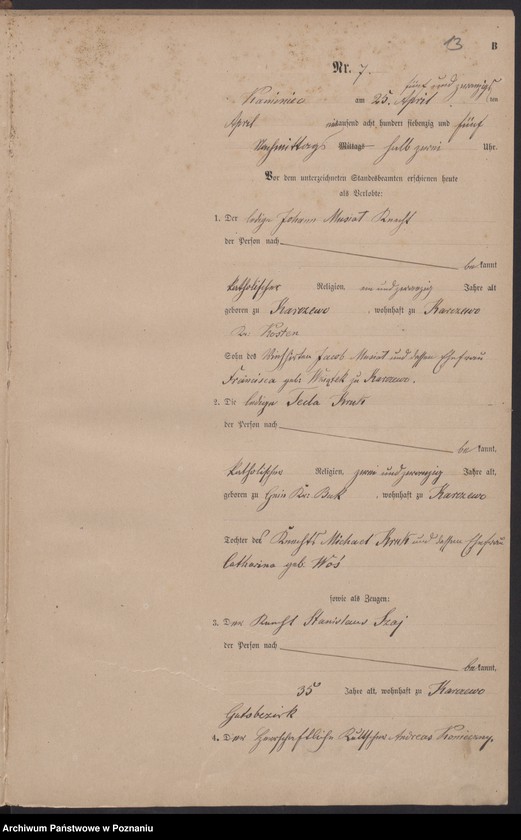 13
B
Nr. 7.
fünf und zwanzigs
Kaminiec am 25. April ten
April eintausend acht hundert siebenzig und fünf
Nachmittags Mittags halb zwei Uhr.
Vor dem unterzeichneten Standesbeamten erschienen heute
als Verlobte:
1. Der ledige Johann Musiat Knecht
der Person nach
be kannt
katholischer Religion, ein und zwanzig Jahre alt
geboren zu Karczewo, wohnhaft zu Karczewo
Kr. Kosten
Sohn des Jacob Musiat und dessen Ehefrau
Francisca geb. zu Karczewo.
2. Die ledige Tecla Kruk
der Person nach
be kannt,
katholischer Religion, zwei und zwanzig Jahre alt,
geboren zu Kr. Buk, wohnhaft zu Karczewo
Tochter des Knechts Michael Kruk und dessen Ehefrau
Catharina geb. Woś
sowie als Zeugen:
3. Der Knecht Stanislaus Szaj
der Person nach
be kannt,
35 Jahre alt, wohnhaft zu Karczewo
Gutsbezirk
4. Der herrschaftliche Kuttscher Andreas Konieczny,
Archiwum Państwowe w Poznaniu